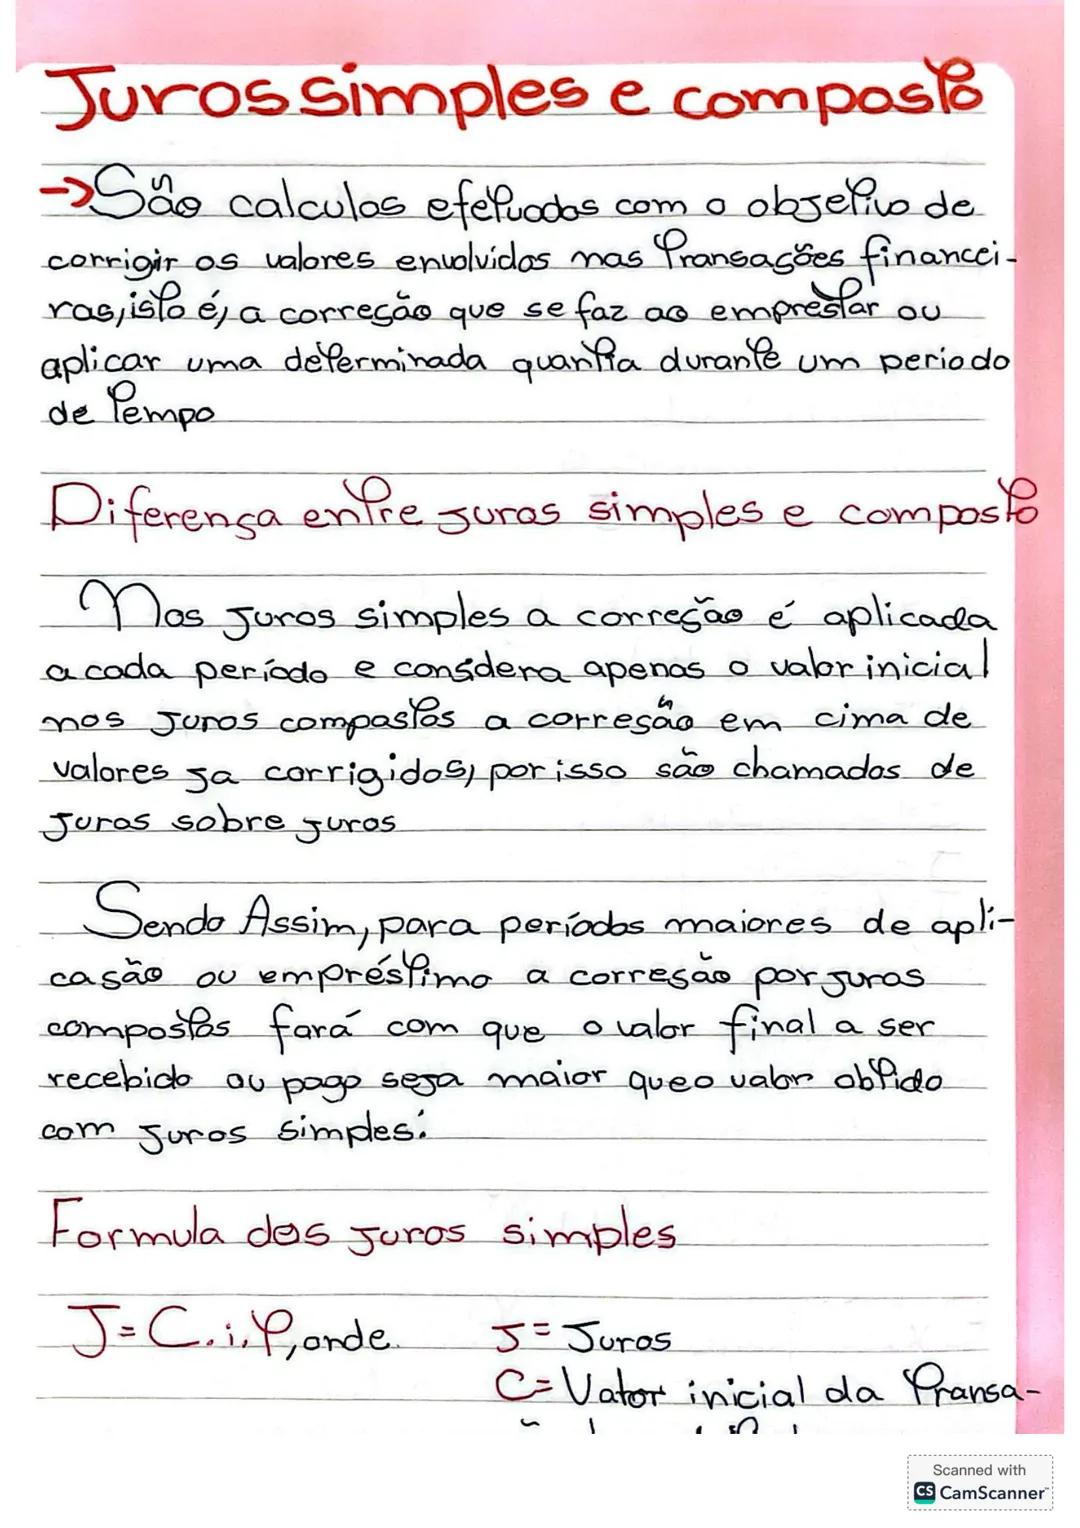 Juros simples e composto
->São calculos efetuados com o objetivo de
corrigir os valores envolvidos nas transações financei-
ras, isto é, a correção que se faz ao emprestar ou
aplicar uma determinada quantia durante um periodo
de tempo
Diferença entre juros simples e composto
Nos juros simples a correção é aplicada
a cada período e considera apenas o valor inicial
nos juros compostos a correção em cima de
valores ja corrigidos, por isso são chamados de
juros sobre juros
Sendo Assim, para períodos maiores de apli-
casão ou empréstimo a corresão por juros
compostos fará com que o valor final a ser
recebido ou pago seja maior que o valor obtido
com juros simples.
Formula dos juros simples
J=C.i.t, onde. J= Juros
C= Valor inicial da transa-
Scanned with
CS CamScanner